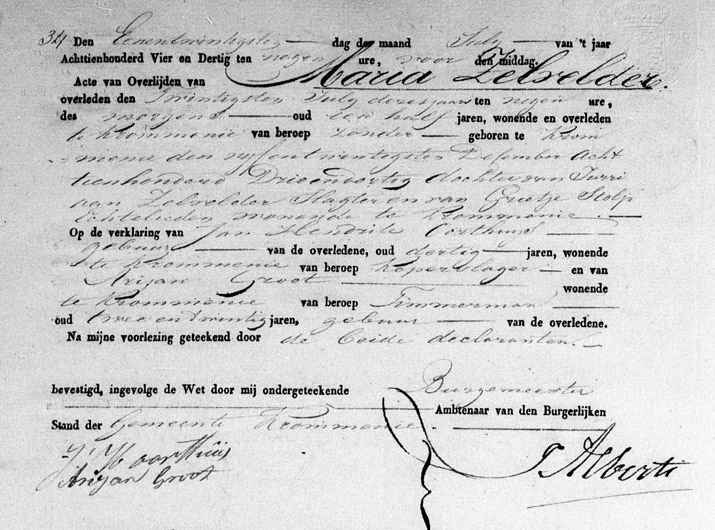 34 Den Eenentwintigsten dag der maand July van 't jaar
Achttienhonderd Vier en Dertig ten negen ure, voor den middag.
Acte van Overlijden van Maria Zelvelder.
overleden den Twintigsten July dezes jaars ten negen ure,
des morgens oud een half jaren, wonende en overleden
te Krommenie van beroep zonder geboren te Krom
menie den vyfentwintigsten December Acht
tienhonderd Drieendertig dochter van Jurri
aan Zelvelder Slagter en van Grietje Stolp
Echtelieden wonende te Krommenie.
Op de verklaring van Jan Hendrik Oorthuys
gebuur van de overledene, oud dertig jaren, wonende
te Krommenie van beroep Koperslager en van
Arijan Groot wonende
te Krommenie van beroep Timmerman
oud twee en twintig jaren, gebuur van de overledene.
Na mijne voorlezing geteekend door de beide declaranten.
bevestigd, ingevolge de Wet door mij ondergeteekende Burgemeester
Ambtenaar van den Burgerlijken
Stand der Gemeente Krommenie.
J H oorthuis
Arijan Groot
Alberti